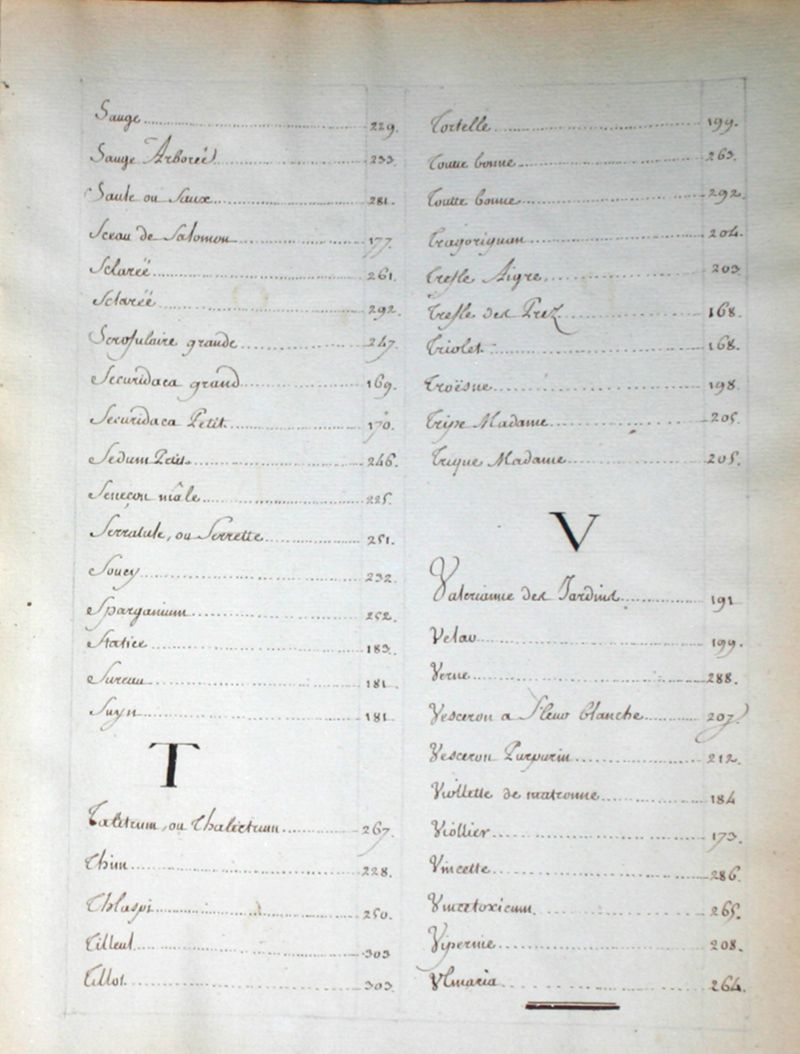 Sauge 229.
Sauge Arboreé 233.
Saule ou Saux 281.
Sceau de Salomon 177.
Sclareë 261.
Sclareë 292.
Scrofulaire grande 247.
Securidaca grand 169.
Securidaca Petit 170.
Sedum Petit 246.
Seneçon mâle 225.
Serratule, ou Serrette 251.
Soucy 232.
Sparganium 252.
Statice 183.
Sureau 181.
Suyn 181.
T
Talitrum, ou Thalictrum 267.
Thim 228.
Thlaspi 250.
Tilleul 303
Tillot 303.
Tortelle 199.
Toutte bonne 263.
Toutte bonne 292.
Tragoriguan 204.
Trefle Aigre 203
Trefle des Prez 168.
Triolet 168.
Troësne 198.
Tripe Madame 205.
Trique Madame 205.
V
Valerianne des Jardins 191
Velau 199.
Verne 288.
Vesceron a fleur blanche 207
Vesceron Purpurin 212.
Viollette de matronne 184
Viollier 173.
Vincette 286.
Vincetoxicum 265.
Viperine 208.
Vlmaria 264.